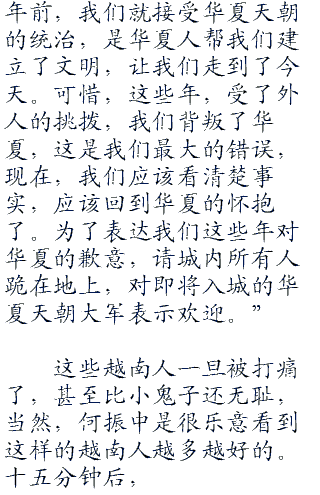 年前，我们就接受华夏天朝
的统治，是华夏人帮我们建
立了文明，让我们走到了今
天。可惜，这些年，受了外
人的挑拨，我们背叛了华
夏，这是我们最大的错误，
现在，我们应该看清楚事
实，应该回到华夏的怀抱
了。为了表达我们这些年对
华夏的歉意，请城内所有人
跪在地上，对即将入城的华
夏天朝大军表示欢迎。”
这些越南人一旦被打痛
了，甚至比小鬼子还无耻，
当然，何振中是很乐意看到
这样的越南人越多越好的。
十五分钟后，